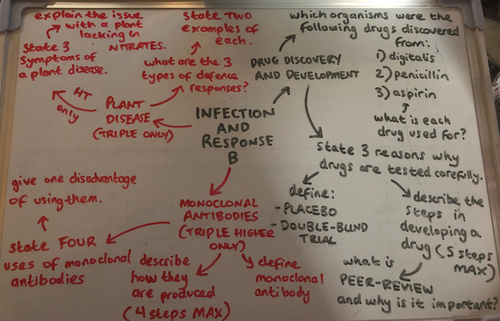 explain the issue
with a plant
lacking in
NITRATES.
State 3
Symptoms of
a plant disease.
HT
only
PLANT
DISEASE
(TRIPLE ONLY)
State TWO
examples of
each.
what are the 3
types of defence
responses?
INFECTION
AND
RESPONSE
B
DRUG DISCOVERY
AND DEVELOPMENT
which organisms were the
following drugs discovered
from:
1) digitalis
2) penicillin
3) aspirin
what is each
drug used for?
State 3 reasons why
drugs are tested carefully.
define:
- PLACEBO
- DOUBLE-BLIND
TRIAL
describe the
steps in
developing a
drug (5 steps
MAX)
what is
PEER-REVIEW
and why is it important?
MONOCLONAL
ANTIBODIES
(TRIPLE HIGHER
ONLY)
define
monoclonal
antibody
describe
how they
are produced
(4 steps MAX)
state FOUR
uses of monoclonal
antibodies
give one disadvantage
of using them.